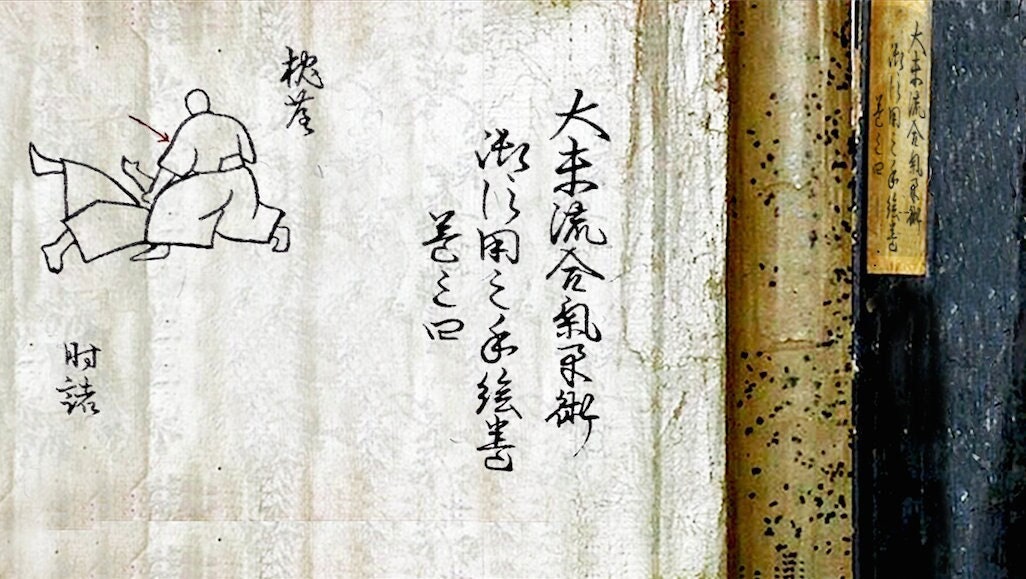 大東流合氣柔術
御信用之手絵巻
巻之四
大東流合氣柔術
御信用之手絵巻
巻之四
肘詰